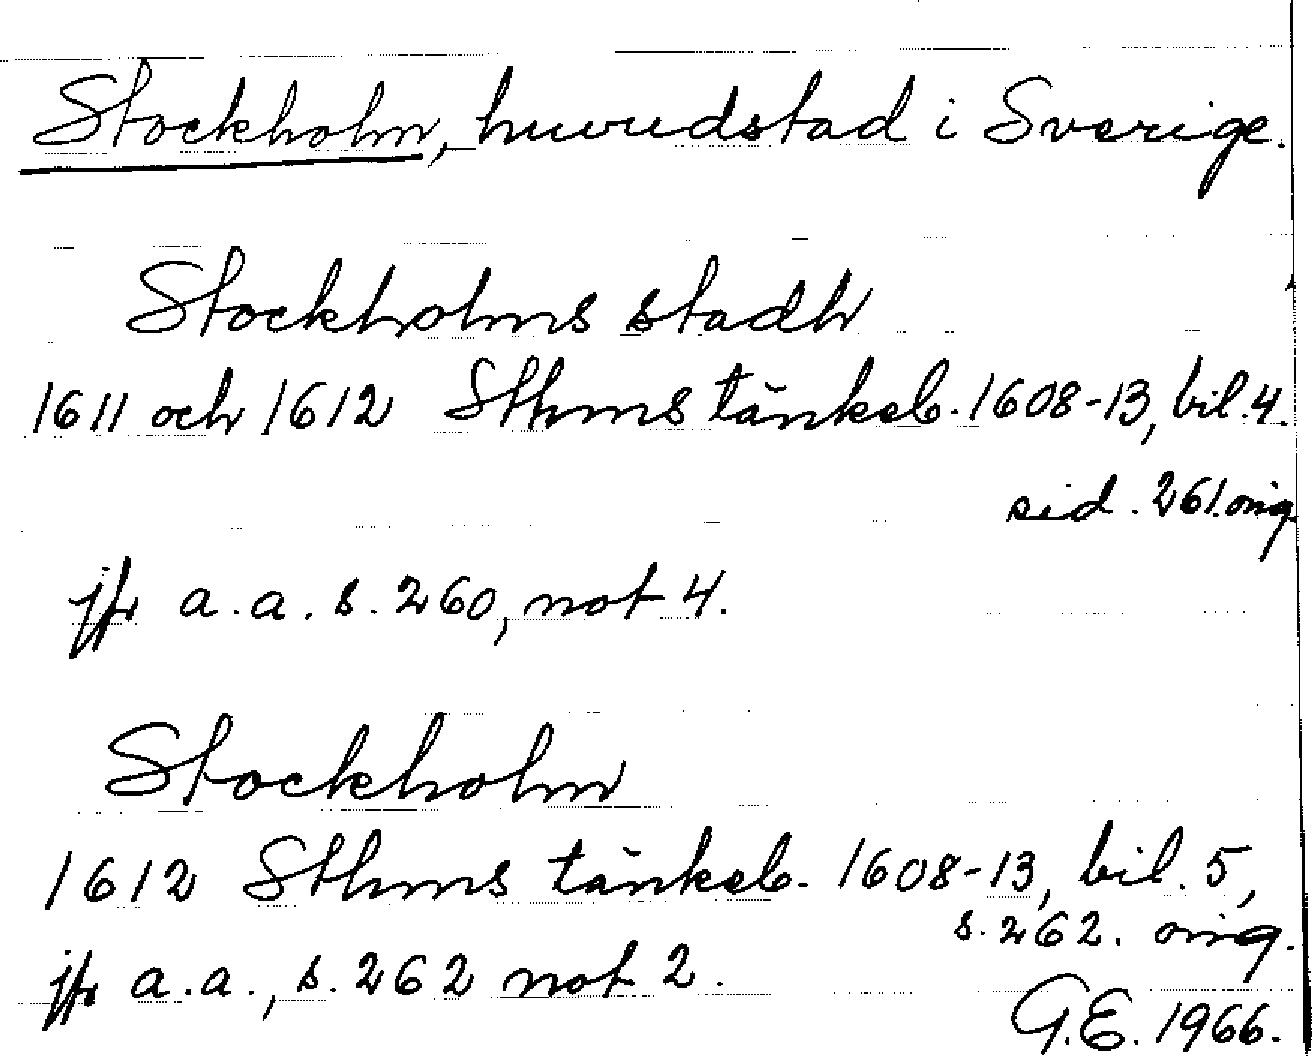 Stockholm, huvudstad i Sverige.
Stockholms stadh
1611 och 1612 Sthms tänkeb. 1608-13, bil. 4.
sid. 261. orig.
jfr a.a. s. 260, not 4.
Stockholm
1612 Sthms tänkeb. 1608-13, bil. 5,
s. 262. orig.
jfr a.a., s. 262 not 2.
G.E. 1966.